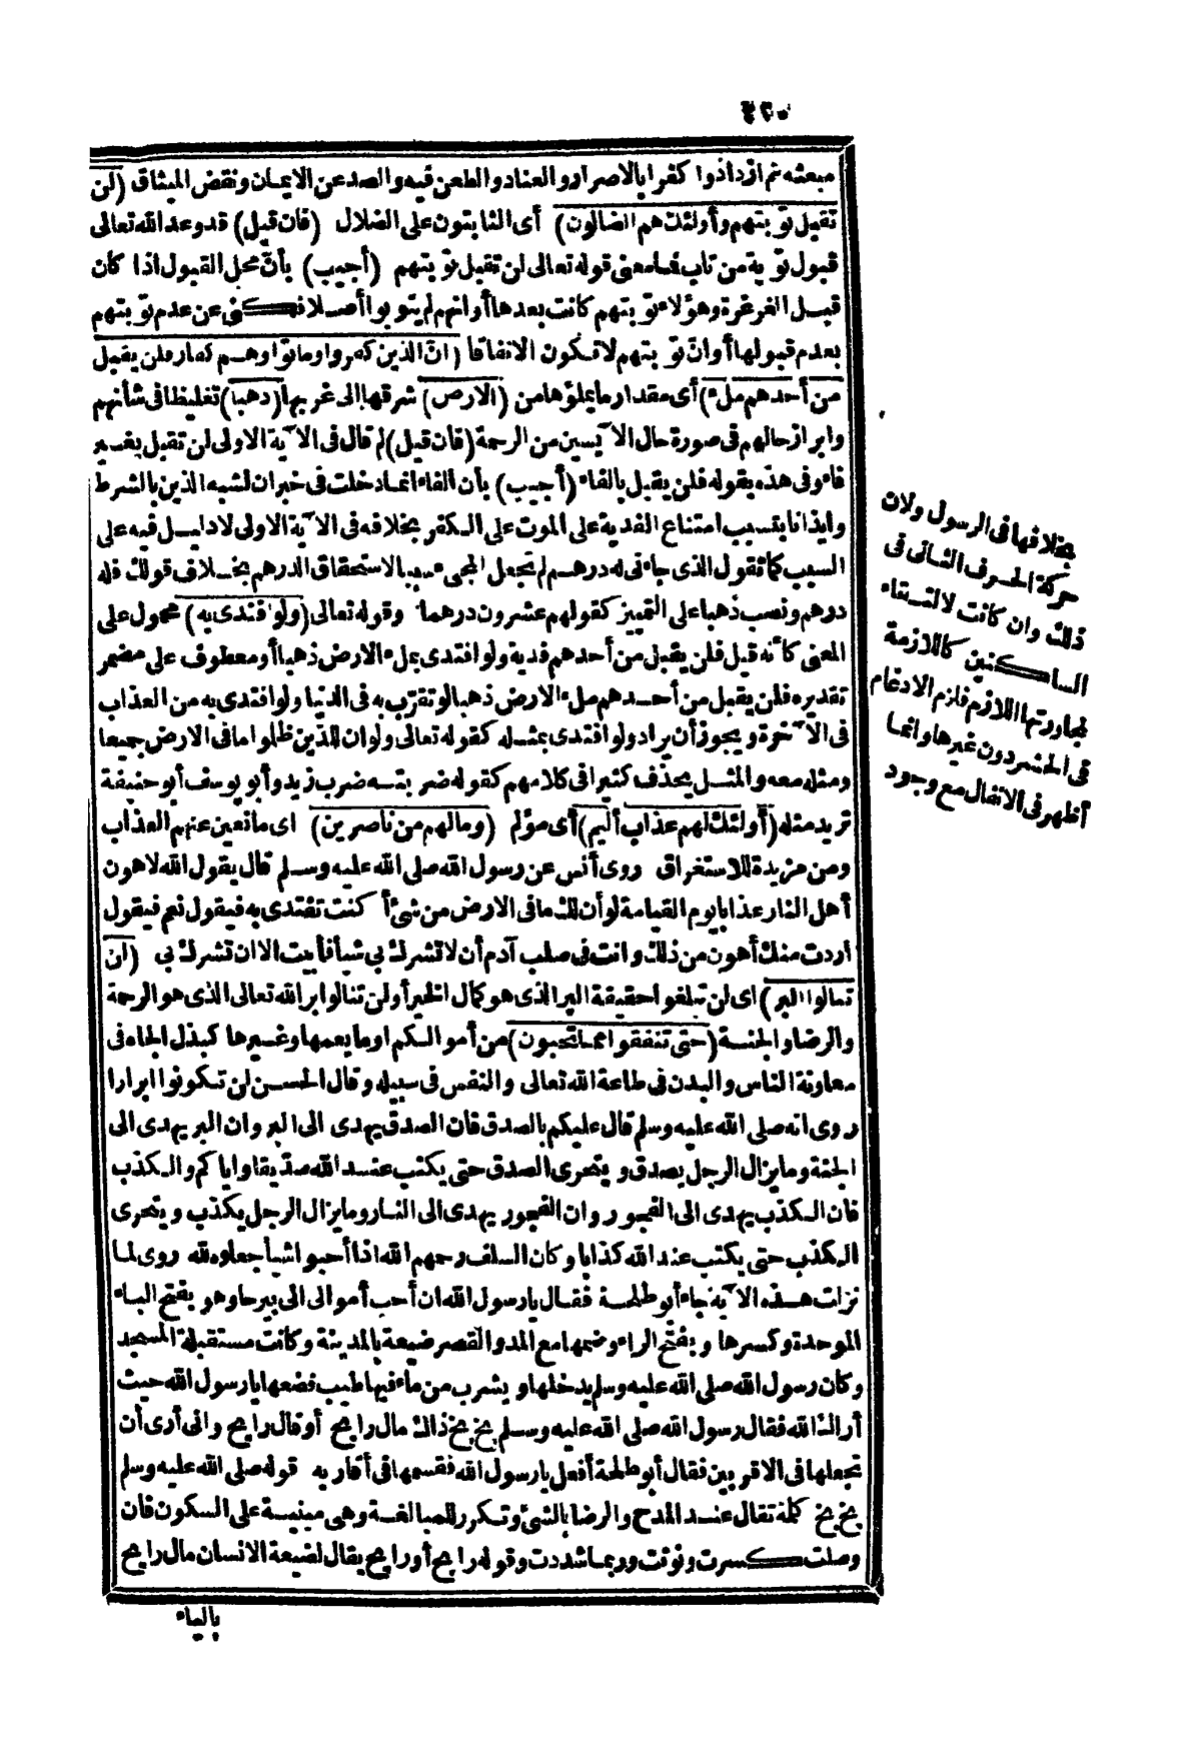 ٢٣٠
مبعثه ثم ازدادوا كفرا بالاصرار والعناد والطعن فيه والصد عن الايمان ونقض الميثاق (لن
تقبل توبتهم وأولئك هم الضالون) أى الثابتون على الضلال (فان قيل) قد وعد الله تعالى
قبول توبة من تاب فما معنى قوله تعالى لن تقبل توبتهم (أجيب) بأن محل القبول اذا كان
قبل الغرغرة وهؤلاء توبتهم كانت بعدها أو انهم لم يتوبوا أصلا فكنى عن عدم توبتهم
بعدم قبولها أو ان توبتهم لا تكون الا نفاقا (ان الذين كفروا وماتوا وهم كفار فلن يقبل
من أحدهم ملء) أى مقدار ما يملؤها من (الارض) شرقها الى غربها (ذهبا) تغليظا فى شأنهم
وابراز حالهم فى صورة حال الآيسين من الرحمة (فان قيل) لم قال فى الآية الاولى لن تقبل بغير
فاء وفى هذه بقوله فلن يقبل بالفاء (أجيب) بأن الفاء انما دخلت فى خبر ان لشبه الذين بالشرط
وايذانا بتسبب امتناع الفدية على الموت على الكفر بخلافه فى الآية الاولى لا دليل فيه على
السبب كما تقول الذى جاءنى له درهم لم تجعل المجىء سببا لاستحقاق الدرهم بخلاف قولك فله
درهم ونصب ذهبا على التمييز كقولهم عشرون درهما وقوله تعالى (ولو افتدى به) محمول على
المعنى كأنه قيل فلن يقبل من أحدهم فدية ولو افتدى بملء الارض ذهبا أو معطوف على مضمر
تقديره فلن يقبل من أحدهم ملء الارض ذهبا لو تقرب به فى الدنيا ولو افتدى به من العذاب
فى الآخرة ويجوز أن يراد ولو افتدى بمثله كقوله تعالى ولو ان للذين ظلموا ما فى الارض جميعا
ومثله معه والمثل يحذف كثيرا فى كلامهم كقوله ضربته ضرب زيد وأبو يوسف أبو حنيفة
تريد مثله (أولئك لهم عذاب أليم) أى مؤلم (وما لهم من ناصرين) اى مانعين عنهم العذاب
ومن مزيدة للاستغراق روى أنس عن رسول الله صلى الله عليه وسلم قال يقول الله لاهون
أهل النار عذابا يوم القيامة لو أن لك ما فى الارض من شئ أكنت تفتدى به فيقول نعم فيقول
اردت منك أهون من ذلك وانت فى صلب آدم أن لا تشرك بى شيأ فأبيت الا ان تشرك بى (لن
تنالوا البر) اى لن تبلغوا حقيقة البر الذى هو كمال الخير أو لن تنالوا بر الله تعالى الذى هو الرحمة
والرضا والجنة (حتى تنفقوا مما تحبون) من أموالكم او ما يعمها وغيرها كبذل الجاه فى
معاونة الناس والبدن فى طاعة الله تعالى والنفس فى سبيله وقال الحسن لن تكونوا ابرارا
روى انه صلى الله عليه وسلم قال عليكم بالصدق فان الصدق يهدى الى البر وان البر يهدى الى
الجنة وما يزال الرجل يصدق ويتحرى الصدق حتى يكتب عند الله صديقا واياكم والكذب
فان الكذب يهدى الى الفجور وان الفجور يهدى الى النار وما يزال الرجل يكذب ويتحرى
الكذب حتى يكتب عند الله كذابا وكان السلف رحمهم الله اذا أحبوا شيأ جعلوه لله روى لما
نزلت هذه الآية جاء أبو طلحة فقال يا رسول الله ان أحب أموالى الى بيرحا وهو بفتح الباء
الموحدة وكسرها وبفتح الراء وضمها مع المد والقصر ضيعة بالمدينة وكانت مستقبلة المسجد
وكان رسول الله صلى الله عليه وسلم يدخلها ويشرب من ماء فيها طيب فضعها يا رسول الله حيث
أراك الله فقال رسول الله صلى الله عليه وسلم بخ بخ ذاك مال رابح أو قال رايح وانى أرى أن
تجعلها فى الاقربين فقال أبو طلحة أفعل يا رسول الله فقسمها فى أقاربه قوله صلى الله عليه وسلم
بخ بخ كلمة تقال عند المدح والرضا بالشئ وتكرر للمبالغة وهى مبنية على السكون فان
وصلت كسرت ونونت وربما شددت وقوله رابح أو رايح يقال لضيعة الانسان مال رايح
بالياء
بخلافها فى الرسول ولان
حركة الحرف الثانى فى
ذلك وان كانت لالتقاء
الساكنين كاللازمة
لمجاورتها اللازم فلزم الادغام
فى الحشر دون غيرها وانما
أظهر فى الانفال مع وجود